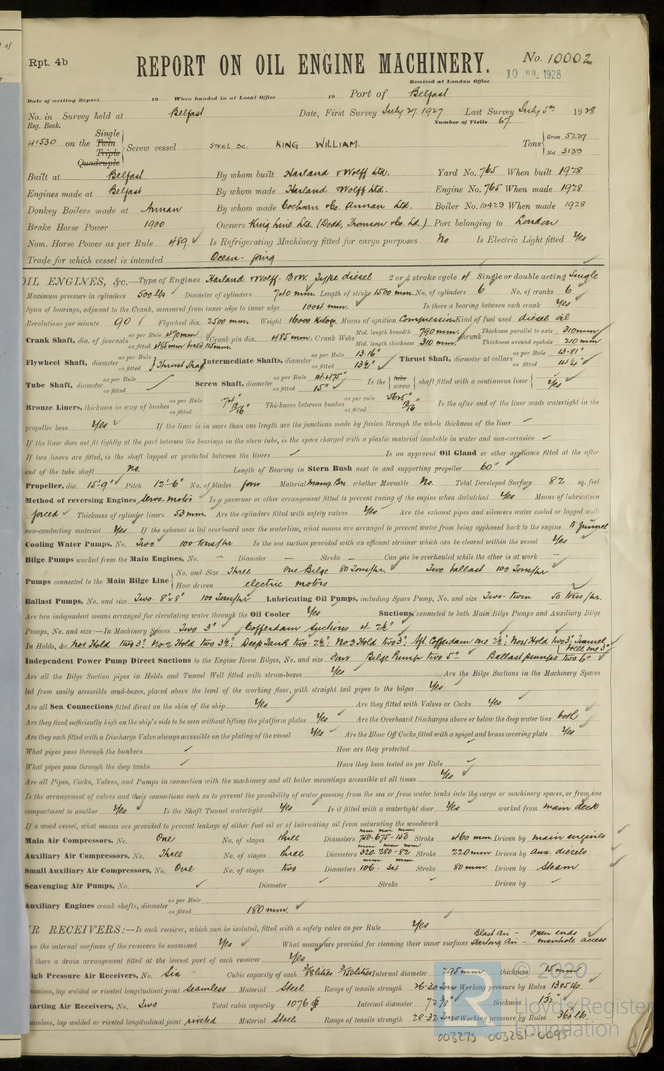 Rpt. 4b
No. 10002
REPORT ON OIL ENGINE MACHINERY.
10 JUL 1928
Received at London Office
Date of writing Report 19 When handed in at Local Office 19 Port of Belfast
No. in Survey held at Belfast Date, First Survey July 27. 1927 Last Survey July 5th 1928
Reg. Book. Number of Visits 67
41530 on the Single Twin Triple Quadruple Screw vessel STEEL SC. KING WILLIAM. Tons Gross 5277 Net 3139
Built at Belfast By whom built Harland & Wolff Ltd. Yard No. 765 When built 1928
Engines made at Belfast By whom made Harland & Wolff Ltd. Engine No. 765 When made 1928
Donkey Boilers made at Annan By whom made Cochran & Co. Annan Ltd. Boiler No. 10429 When made 1928
Brake Horse Power 1900 Owners King Line Ltd. (Dodd, Thomson & Co. Ltd.) Port belonging to London
Nom. Horse Power as per Rule 489 Is Refrigerating Machinery fitted for cargo purposes No Is Electric Light fitted Yes
Trade for which vessel is intended Ocean-going
OIL ENGINES, &c.—Type of Engines Harland & Wolff B&W Type diesel 2 or 4 stroke cycle 4 Single or double acting Single
Maximum pressure in cylinders 500 lbs Diameter of cylinders 740 mm. Length of stroke 1500 mm. No. of cylinders 6 No. of cranks 6
Span of bearings, adjacent to the Crank, measured from inner edge to inner edge Is there a bearing between each crank Yes
Revolutions per minute 90 Flywheel dia. 2500 mm. Weight 16000 kilogs. Means of ignition Compression Kind of fuel used diesel oil
Crank Shaft, dia. of journals as per Rule 470 mm as fitted Crank pin dia. 485 mm. Crank Webs Mid. length breadth 790 mm. Mid. length thickness 310 mm. shrunk Thickness parallel to axis 310 mm Thickness around eyehole 210 mm
Flywheel Shaft, diameter as per Rule as fitted Thrust Shaft Intermediate Shafts, diameter as per Rule 13.16" as fitted 13½" Thrust Shaft, diameter at collars as per Rule 13.81" as fitted
Tube Shaft, diameter as per Rule as fitted Screw Shaft, diameter as per Rule as fitted 15" Is the tube screw shaft fitted with a continuous liner Yes
Bronze Liners, thickness in way of bushes as per Rule as fitted Thickness between bushes as per rule as fitted Is the after end of the liner made watertight in the
propeller boss Yes If the liner is in more than one length are the junctions made by fusion through the whole thickness of the liner —
If the liner does not fit tightly at the part between the bearings in the stern tube, is the space charged with a plastic material insoluble in water and non-corrosive —
If two liners are fitted, is the shaft lapped or protected between the liners Is an approved Oil Gland or other appliance fitted at the after
end of the tube shaft No. Length of Bearing in Stern Bush next to and supporting propeller 60"
Propeller, dia. 15'-9" Pitch 12'-6" No. of blades four Material Mang. Brz. whether Moveable No. Total Developed Surface 82 sq. feet
Method of reversing Engines Servo-motor Is a governor or other arrangement fitted to prevent racing of the engine when declutched Yes Means of lubrication
forced Thickness of cylinder liners 53 mm. Are the cylinders fitted with safety valves Yes Are the exhaust pipes and silencers water cooled or lagged with
non-conducting material Yes If the exhaust is led overboard near the waterline, what means are arranged to prevent water from being syphoned back to the engine to funnel
Cooling Water Pumps, No. Two 100 tons/hr. Is the sea suction provided with an efficient strainer which can be cleared within the vessel Yes
Bilge Pumps worked from the Main Engines, No. — Diameter — Stroke — Can one be overhauled while the other is at work —
Pumps connected to the Main Bilge Line No. and Size Three One Bilge 80 tons/hr. Two ballast 100 tons/hr
How driven electric motors
Ballast Pumps, No. and size Two 8"x8" 100 tons/hr Lubricating Oil Pumps, including Spare Pump, No. and size Two-twin 50 tons/hr.
Are two independent means arranged for circulating water through the Oil Cooler Yes Suctions, connected to both Main Bilge Pumps and Auxiliary Bilge
Pumps, No. and size:—In Machinery Spaces Two 3" Cofferdam Suctions 4. 2½"
In Holds, &c. No.1 Hold two 3½" No.2 Hold two 3½" Deep Tank two 2½" No.3 Hold two 3" Aft Cofferdam one 2½" No.4 Hold two 3" Tunnel Well one 3"
Independent Power Pump Direct Suctions to the Engine Room Bilges, No. and size One Bilge Pump two 5" Ballast pumps two 6"
Are all the Bilge Suction pipes in Holds and Tunnel Well fitted with strum-boxes Yes Are the Bilge Suctions in the Machinery Spaces
led from easily accessible mud-boxes, placed above the level of the working floor, with straight tail pipes to the bilges Yes
Are all Sea Connections fitted direct on the skin of the ship Yes Are they fitted with Valves or Cocks Yes
Are they fixed sufficiently high on the ship's side to be seen without lifting the platform plates Yes Are the Overboard Discharges above or below the deep water line both
Are they each fitted with a Discharge Valve always accessible on the plating of the vessel Yes Are the Blow Off Cocks fitted with a spigot and brass covering plates Yes
What pipes pass through the bunkers How are they protected
What pipes pass through the deep tanks Have they been tested as per Rule
Are all Pipes, Cocks, Valves, and Pumps in connection with the machinery and all boiler mountings accessible at all times Yes
Is the arrangement of valves and their connections such as to prevent the possibility of water passing from the sea or from water tanks into the cargo or machinery spaces, or from one
compartment to another Yes Is the Shaft Tunnel watertight Yes Is it fitted with a watertight door Yes worked from main deck
If a wood vessel, what means are provided to prevent leakage of either fuel oil or of lubricating oil from saturating the woodwork
Main Air Compressors, No. One No. of stages three Diameters 750-675-148 mm Stroke 460 mm Driven by main engines
Auxiliary Air Compressors, No. Three No. of stages three Diameters 320. 280-82 mm Stroke 220 mm Driven by aux. diesels
Small Auxiliary Air Compressors, No. One No. of stages two Diameters Stroke 80 mm. Driven by Steam
Scavenging Air Pumps, No. Diameter Stroke Driven by
Auxiliary Engines crank shafts, diameter as per Rule as fitted 180 mm.
AIR RECEIVERS:—Is each receiver, which can be isolated, fitted with a safety valve as per Rule Yes
Can the internal surfaces of the receivers be examined Yes What means are provided for cleaning their inner surfaces Blast Air - open ends Starting Air - manhole access
Is there a drain arrangement fitted at the lowest part of each receiver Yes
High Pressure Air Receivers, No. Six Cubic capacity of each Internal diameter 295 mm thickness 15 mm
Seamless, lap welded or riveted longitudinal joint Seamless Material Steel Range of tensile strength 26-30 tons Working pressure by Rules
Starting Air Receivers, No. Two Total cubic capacity 1076 cf. Internal diameter thickness
Seamless, lap welded or riveted longitudinal joint riveted Material Steel Range of tensile strength 28-32 tons Working pressure by Rules 360 lb
© 2020
Lloyd's Register
Foundation
003275-003281-0095